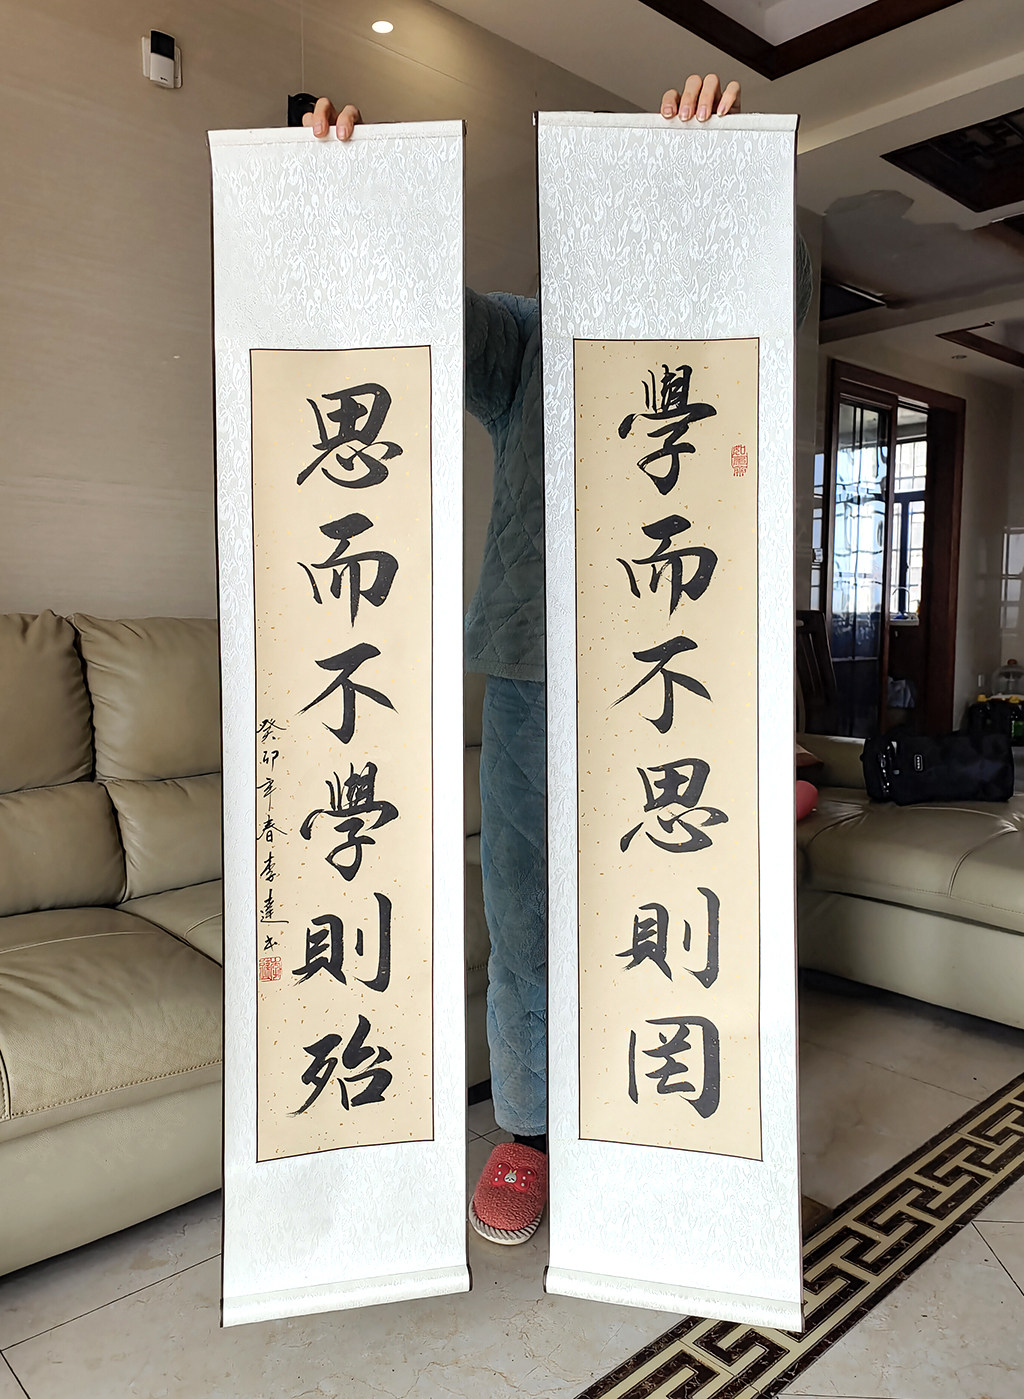 學而不思則罔
思而不學則殆
癸卯年春李達书